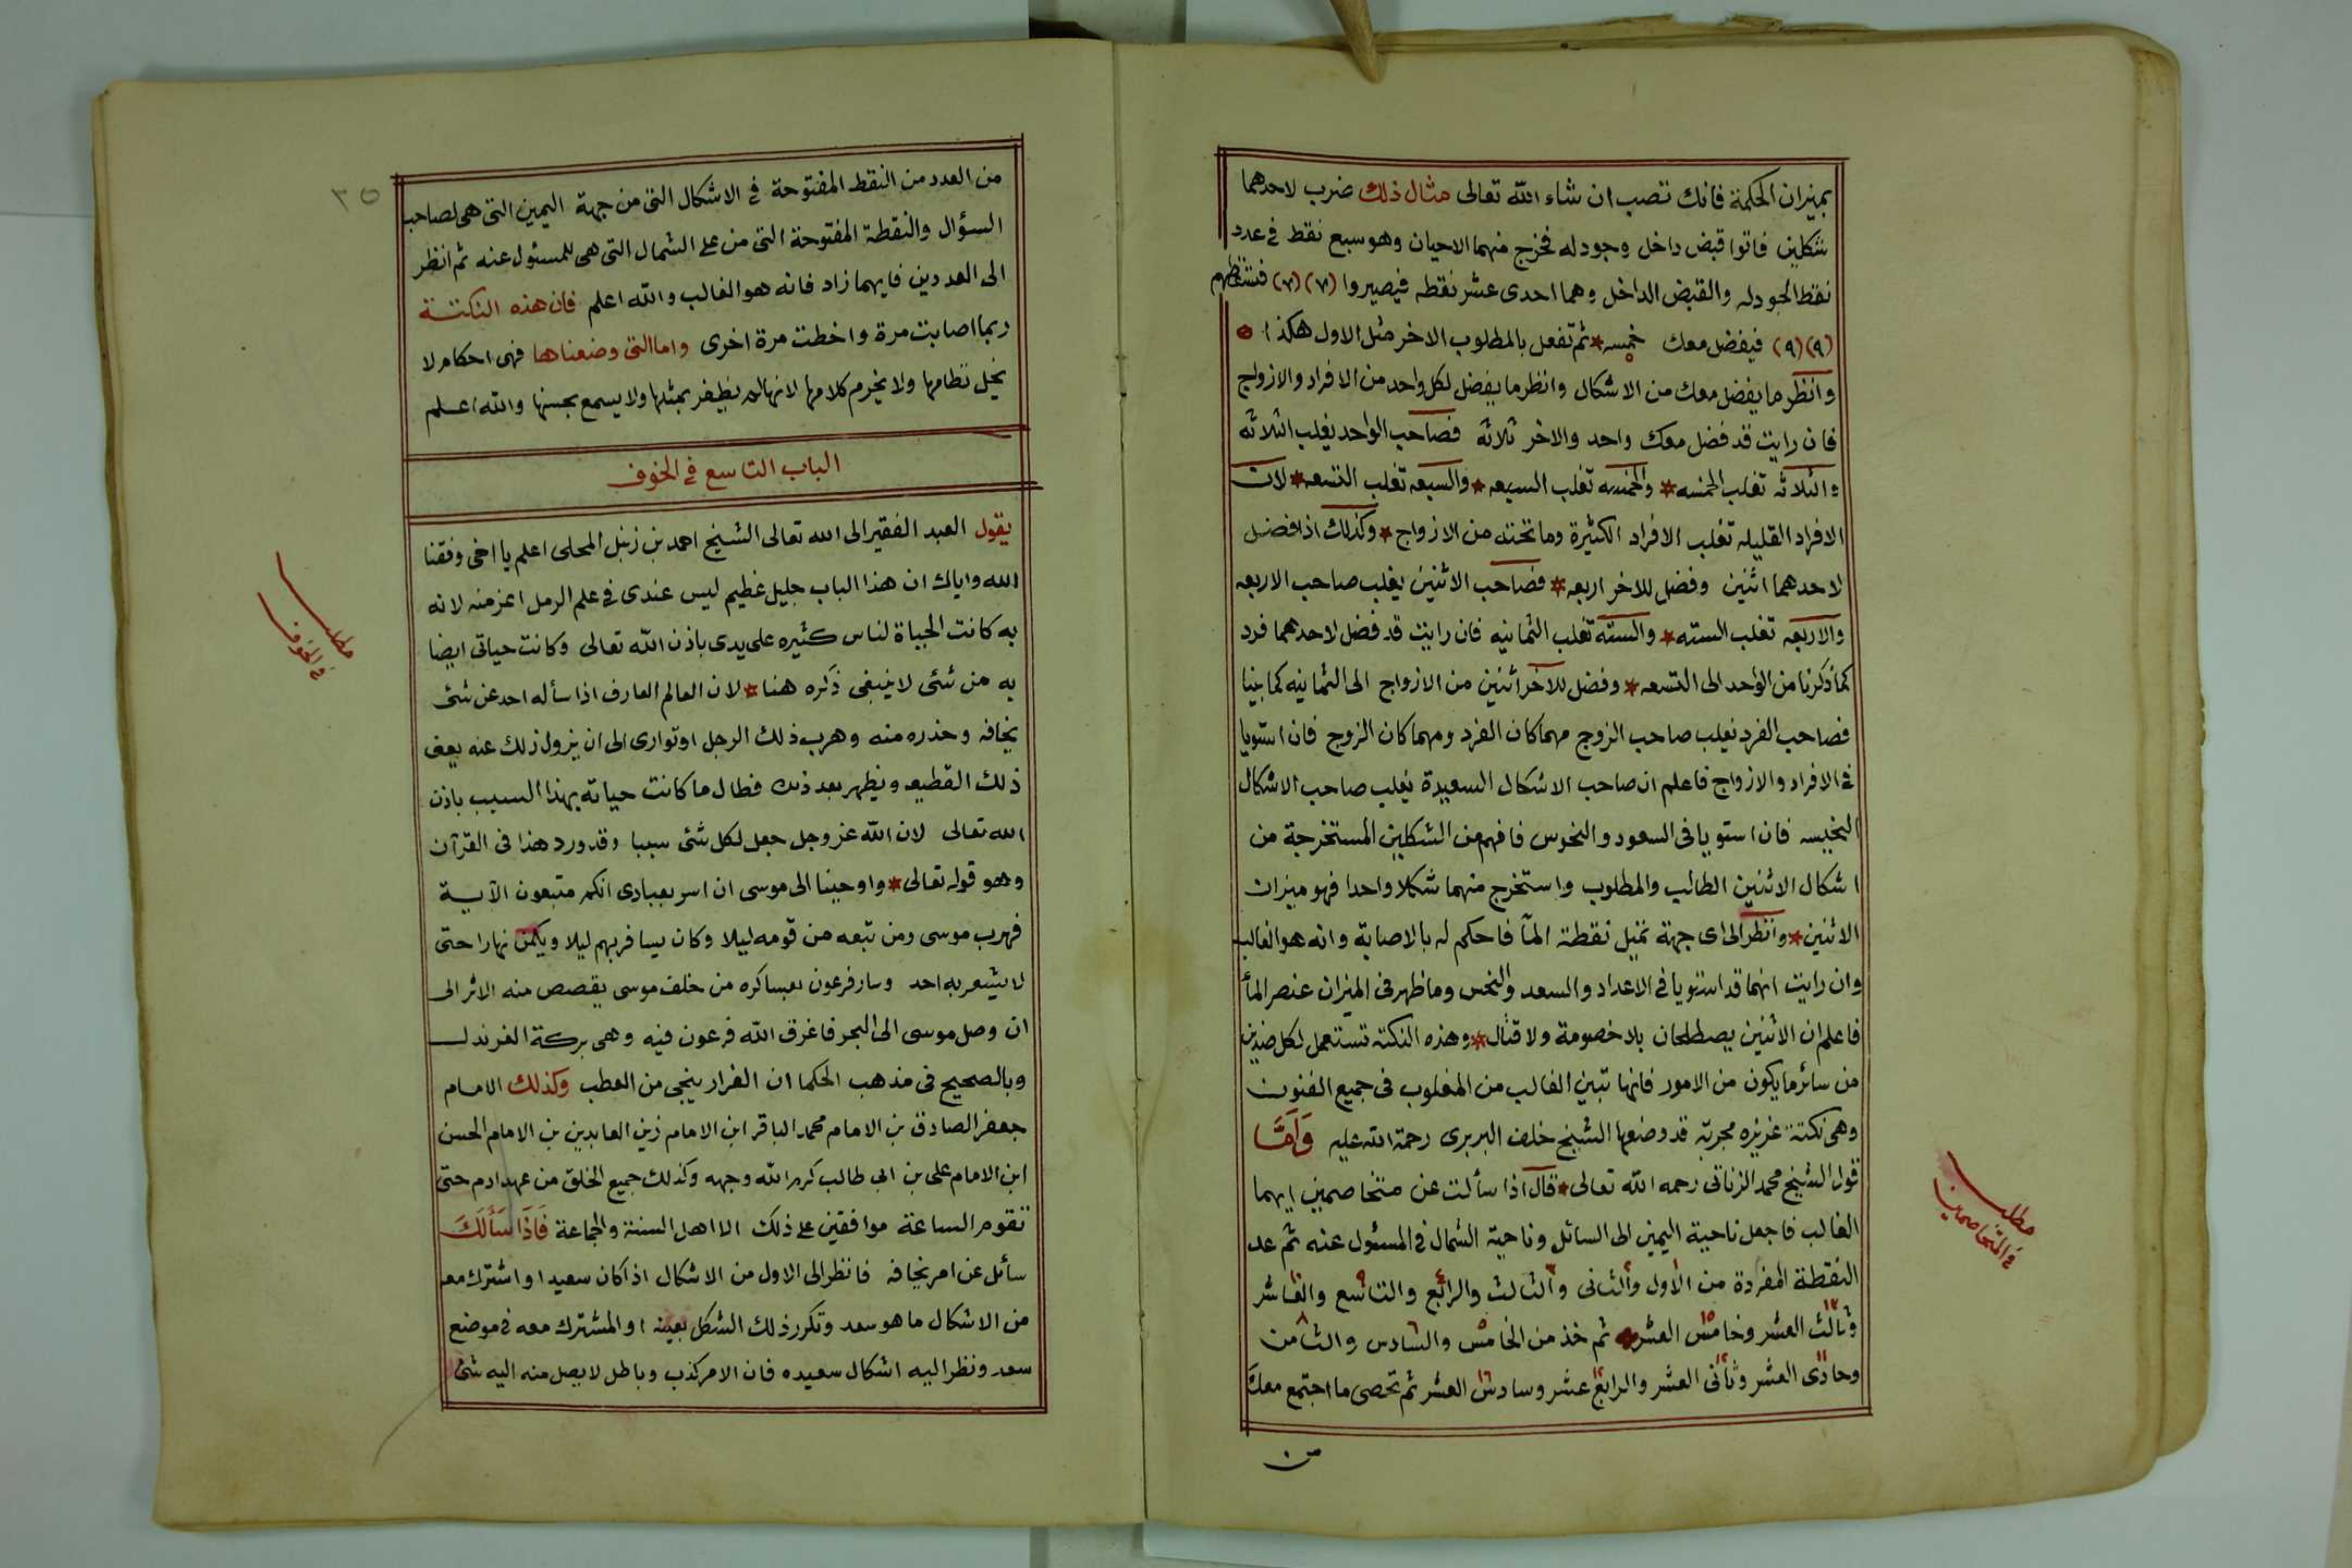 بميزان الحكمة فانك تصب ان شاء الله تعالى مثال ذلك ضرب لاحدهما
شكلين فاتوا قبض داخل وجودله فخرج منهما الاحيان وهو سبع نقط فى عدد
نقط الجودله والقبض الداخل وهما احدى عشر نقطه فيصيروا (٧) (٧)
(٩) (٩) فيفضل معك خمسه * ثم تفعل بالمطلوب الاخر مثل الاول هكذا
وانظر ما يفضل معك من الاشكال وانظر ما يفضل لكل واحد من الافراد والازواج
فان رايت قد فضل معك واحد والاخر ثلاثه فصاحب الواحد يغلب الثلاثه
والثلاثه تغلب الخمسه * والخمسه تغلب السبعه * والسبعه تغلب التسعه * لان
الافراد القليله تغلب الافراد الكثيرة وما تحته من الازواج * وكذلك اذا فضل
لاحدهما اثنين وفضل للاخر اربعه * فصاحب الاثنين يغلب صاحب الاربعه
والاربعه تغلب السته * والسته تغلب الثمانيه فان رايت قد فضل لاحدهما فرد
كما ذكرنا من الواحد الى التسعه * وفضل للاخر اثنين من الازواج الى الثمانيه كما بينا
فصاحب الفرد يغلب صاحب الزوج مهما كان الفرد ومهما كان الزوج فان استويا
فى الافراد والازواج فاعلم ان صاحب الاشكال السعيدة يغلب صاحب الاشكال
النحيسه فان استويا فى السعود والنحوس فافهم من الشكلين المستخرجة من
اشكال الاثنين الطالب والمطلوب واستخرج منهما شكلا واحدا فهو ميزان
الاثنين * وانظر الى اى جهة تميل نقطة المآ فاحكم له بالاصابة وانه هو الغالب
وان رايت انهما قد استويا فى الاعداد والسعد والنحس وما ظهر فى الميزان عنصر المآ
فاعلم ان الاثنين يصطلحان بلا خصومة ولا قتال * وهذه النكته تستعمل لكل ضدين
من سائر ما يكون من الامور فانها تبين الغالب من المغلوب فى جميع الفنون
وهى نكتة عزيزه مجربة قد وضعها الشيخ خلف البربرى رحمة الله عليه وَاَمَّا
قول الشيخ محمد الزناتى رحمه الله تعالى * قال اذا سألت عن متخاصمين ايهما
الغالب فاجعل ناحية اليمين الى السائل وناحية الشمال فى المسئول عنه ثم عد
النقطة المفردة من الاول والثانى والثالث والرابع والتاسع والعاشر
وثالث العشر وخامس العشر ثم خذ من الخامس والسادس والثامن
وحادى العشر وثانى العشر والرابع عشر وسادس العشر ثم تحصى ما اجتمع معك
من
مطلب
فى المتخاصمين
٣٥
من العدد من النقط المفتوحة فى الاشكال التى من جهة اليمين التى هى لصاحب
السؤال والنقطة المفتوحة التى من على الشمال التى هى للمسئول عنه ثم انظر
الى العددين فايهما زاد فانه هو الغالب والله اعلم فان هذه النكتة
ربما اصابت مرة واخطت مرة اخرى واما التى وضعناها فهى احكام لا
يخل نظامها ولا يخرم كلامها لانها لم يظفر بمثلها ولا يسمع بحسنها والله اعلم
الباب التاسع فى الخوف
يقول العبد الفقير الى الله تعالى الشيخ احمد بن زنبل المحلى اعلم يا اخى وفقنا
الله واياك ان هذا الباب جليل عظيم ليس عندى فى علم الرمل اعز منه لانه
به كانت الحياة لناس كثيره على يدى باذن الله تعالى وكانت حياتى ايضا
به من شئى لا ينبغى ذكره هنا * لان العالم العارف اذا سأله احد عن شئ
يخافه وحذره منه وهرب ذلك الرجل او توارى الى ان يزول ذلك عنه يعنى
ذلك القطيع ويظهر بعد ذلك فطال ما كانت حياته بهذا السبب باذن
الله تعالى لان الله عز وجل جعل لكل شئى سببا وقد ورد هذا فى القرآن
وهو قوله تعالى * واوحينا الى موسى ان اسر بعبادى انكم متبعون الآية
فهرب موسى ومن تبعه من قومه ليلا وكان يسافر بهم ليلا ويكمن نهارا حتى
لا يشعر به احد وسار فرعون بعساكره من خلف موسى يقصص منه الاثر الى
ان وصل موسى الى البحر فاغرق الله فرعون فيه وهى بركة الغرندل
وبالصحيح فى مذهب الحكما ان الفرار ينجى من العطب وكذلك الامام
جعفر الصادق بن الامام محمد الباقر ابن الامام زين العابدين بن الامام الحسن
ابن الامام على بن ابى طالب كرم الله وجهه وكذلك جميع الخلق من عهد ادم حتى
تقوم الساعة موافقين على ذلك الا اهل السنة والجماعة فَاِذَا سَأَلَكَ
سائل عن امر يخافه فانظر الى الاول من الاشكال اذا كان سعيدا واشترك معه
من الاشكال ما هو سعد وتكرر ذلك الشكل بعينه او المشترك معه فى موضع
سعد ونظر اليه اشكال سعيده فان الامر كذب وباطل لا يصل منه اليه شئ
مطلب
فى الخوف